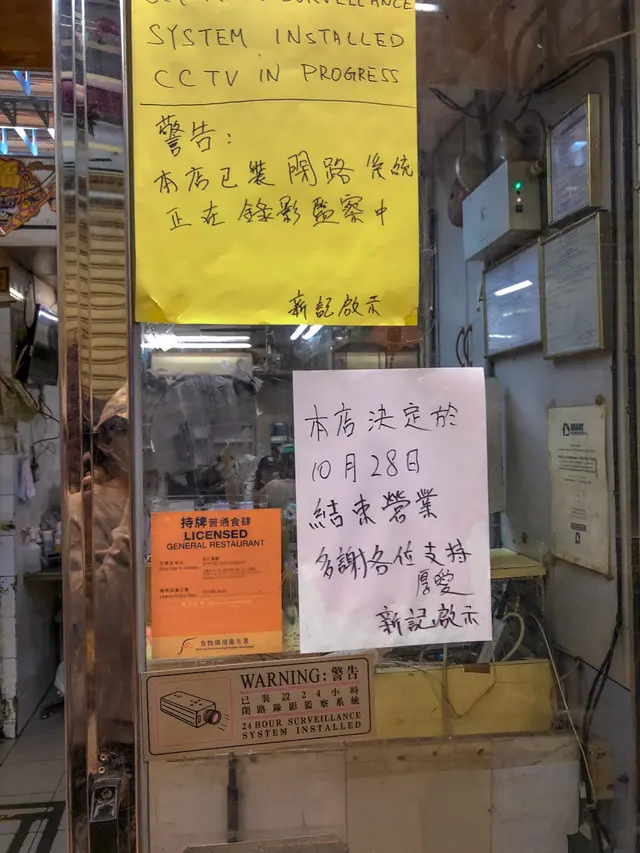 SURVEILLANCE
SYSTEM INSTALLED
CCTV IN PROGRESS
警告：
本店已裝閉路系統
正在錄影監察中
新記啟示
本店決定於
10月28日
結束營業
多謝各位支持
厚愛
新記啟示
持牌普通食肆
LICENSED
GENERAL RESTAURANT
食物環境衞生署
WARNING: 警告
已裝設24小時
閉路錄影監察系統
24 HOUR SURVEILLANCE
SYSTEM INSTALLED